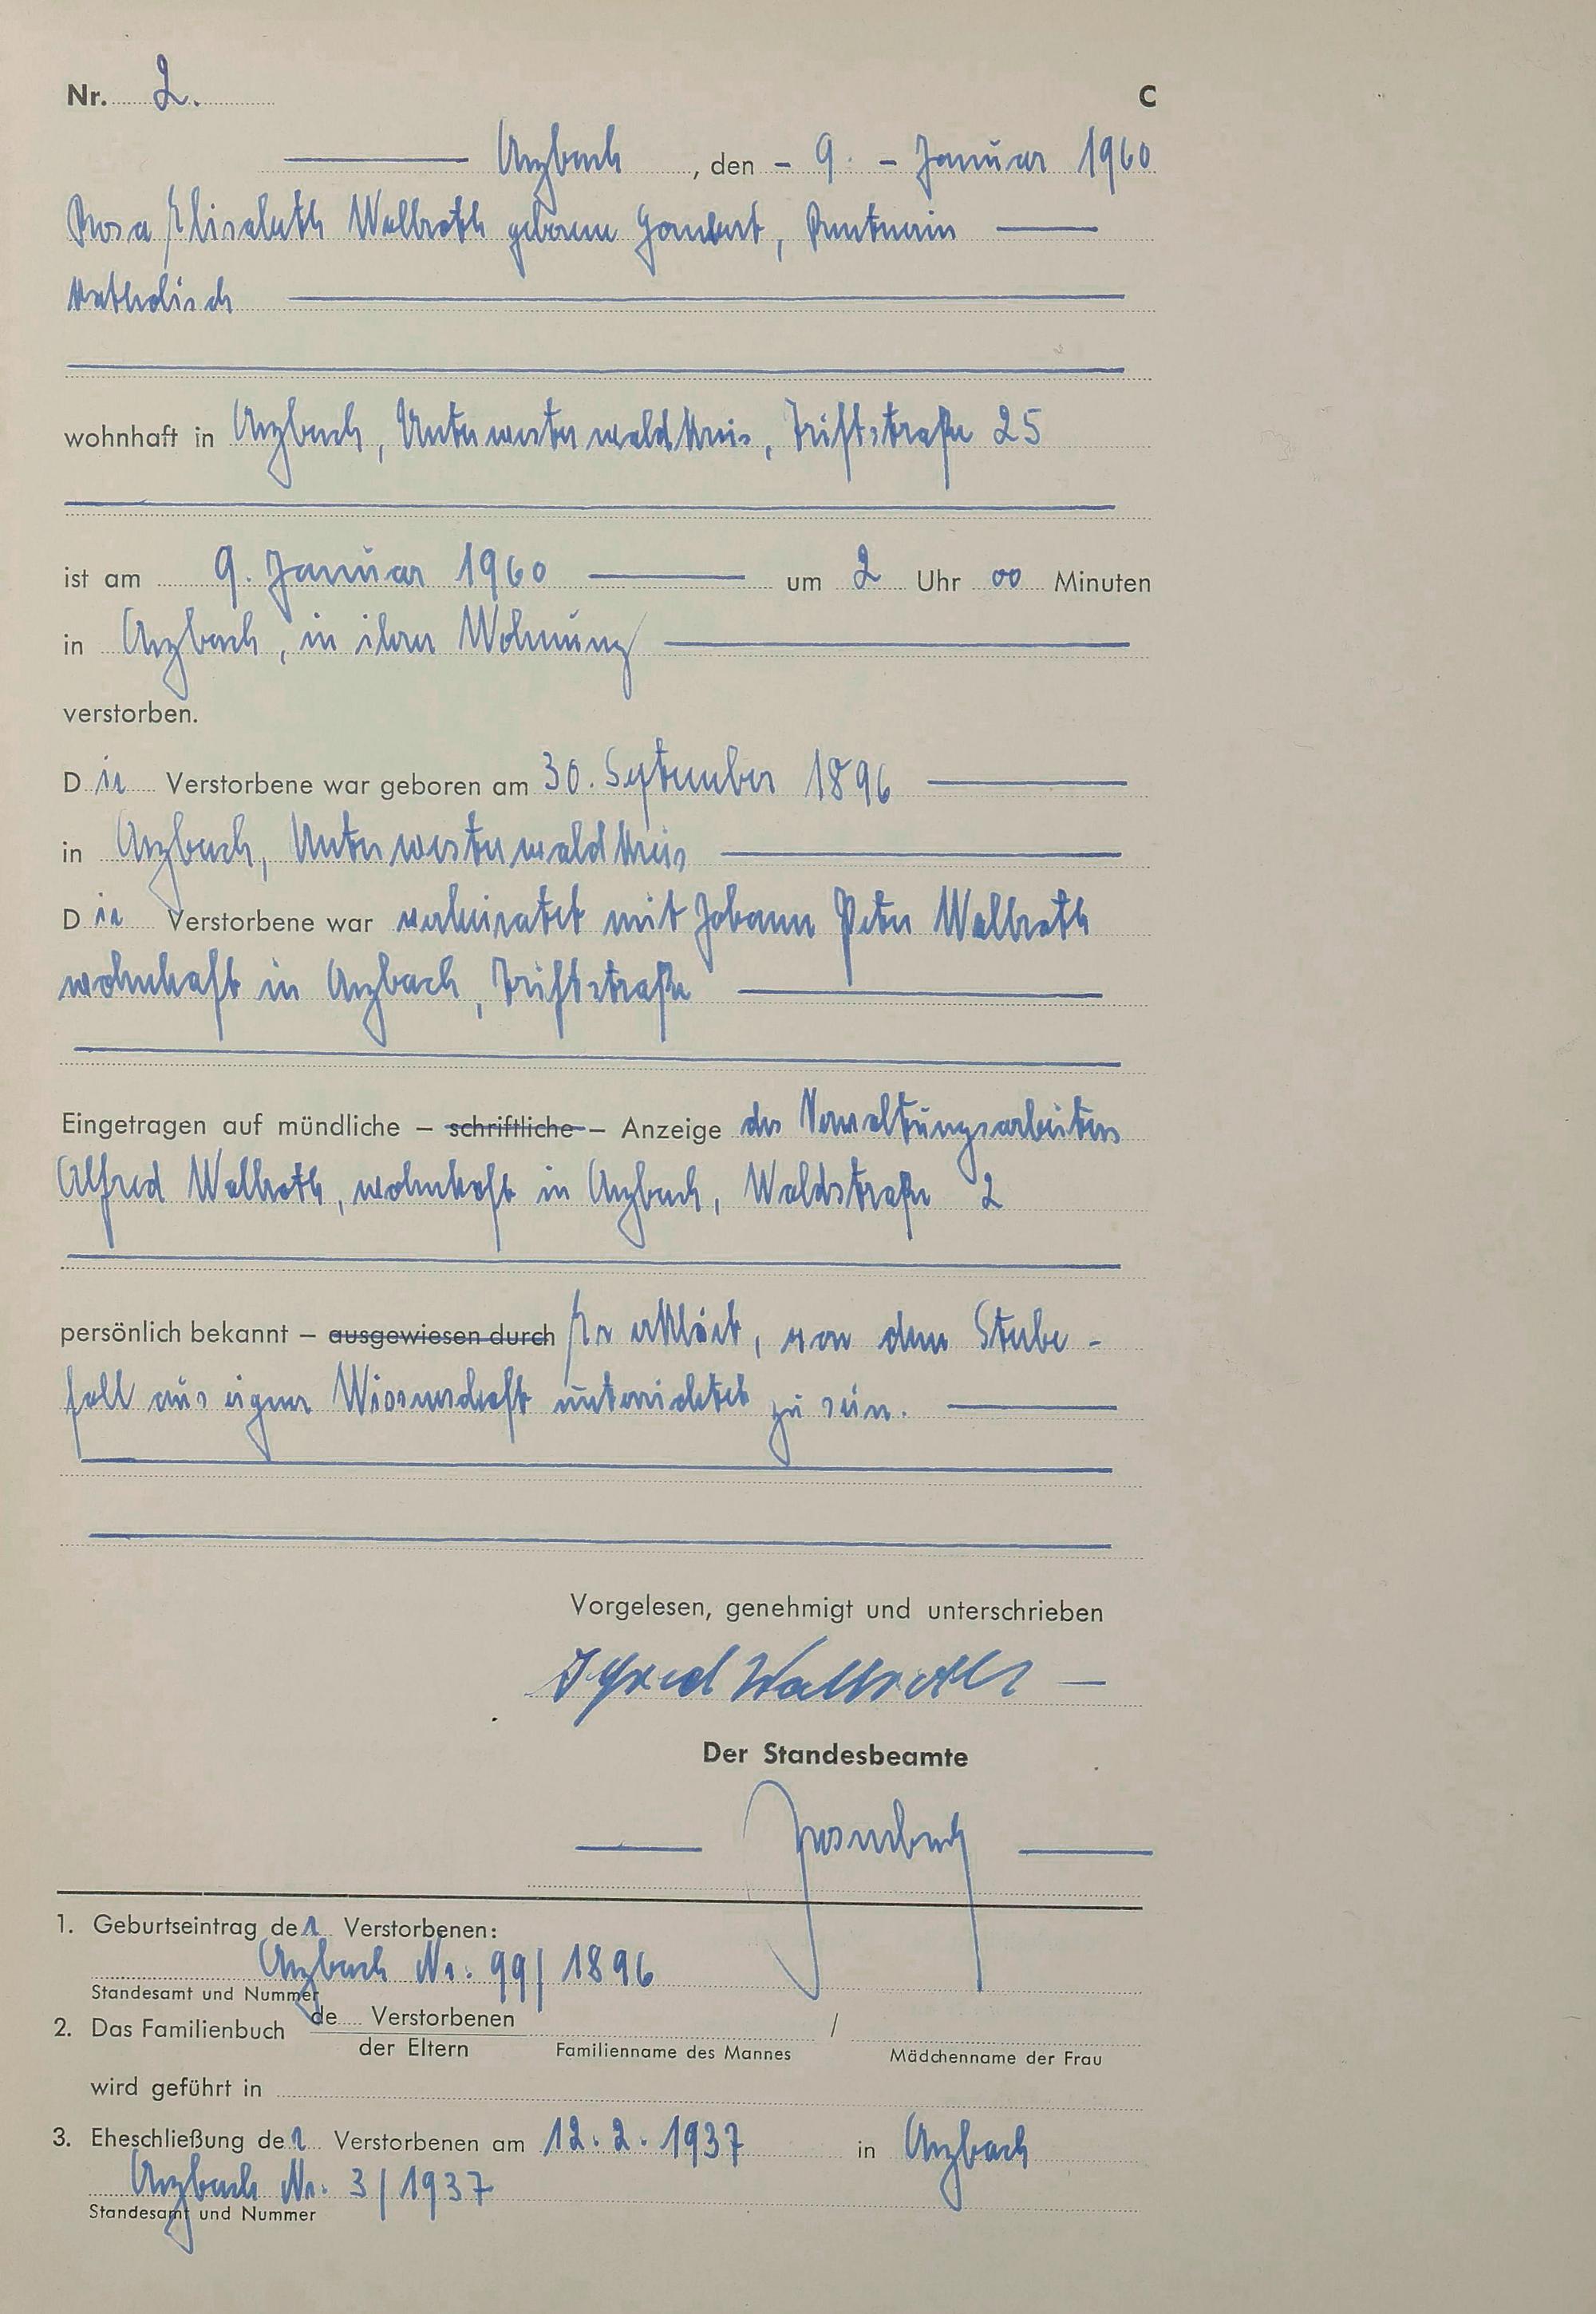 Nr. 2. C
Arzbach, den - 9. - Januar 1960
Rosa Elisabeth Wallroth geborene, Rentnerin
Katholisch
wohnhaft in Arzbach, Unterwesterwaldkreis, Triftstraße 25
ist am 9. Januar 1960 um 2 Uhr 00 Minuten
in Arzbach, in ihrer Wohnung
verstorben.
Die Verstorbene war geboren am 30. September 1896
in Arzbach, Unterwesterwaldkreis
Die Verstorbene war verheiratet mit Johann Peter Wallroth
wohnhaft in Arzbach, Triftstraße
Eingetragen auf mündliche – schriftliche – Anzeige des Verwaltungsarbeiters
Alfred Wallroth, wohnhaft in Arzbach, Waldstraße 2
persönlich bekannt – ausgewiesen durch Er erklärt, von dem Sterbe-
fall aus eigner Wissenschaft unterrichtet zu sein.
Vorgelesen, genehmigt und unterschrieben
Alfred Wallroth
Der Standesbeamte
1. Geburtseintrag der Verstorbenen:
Arzbach Nr. 99/1896
Standesamt und Nummer
2. Das Familienbuch de Verstorbenen /
der Eltern Familienname des Mannes Mädchenname der Frau
wird geführt in
3. Eheschließung der Verstorbenen am 12.2.1937 in Arzbach
Arzbach Nr. 3/1937
Standesamt und Nummer